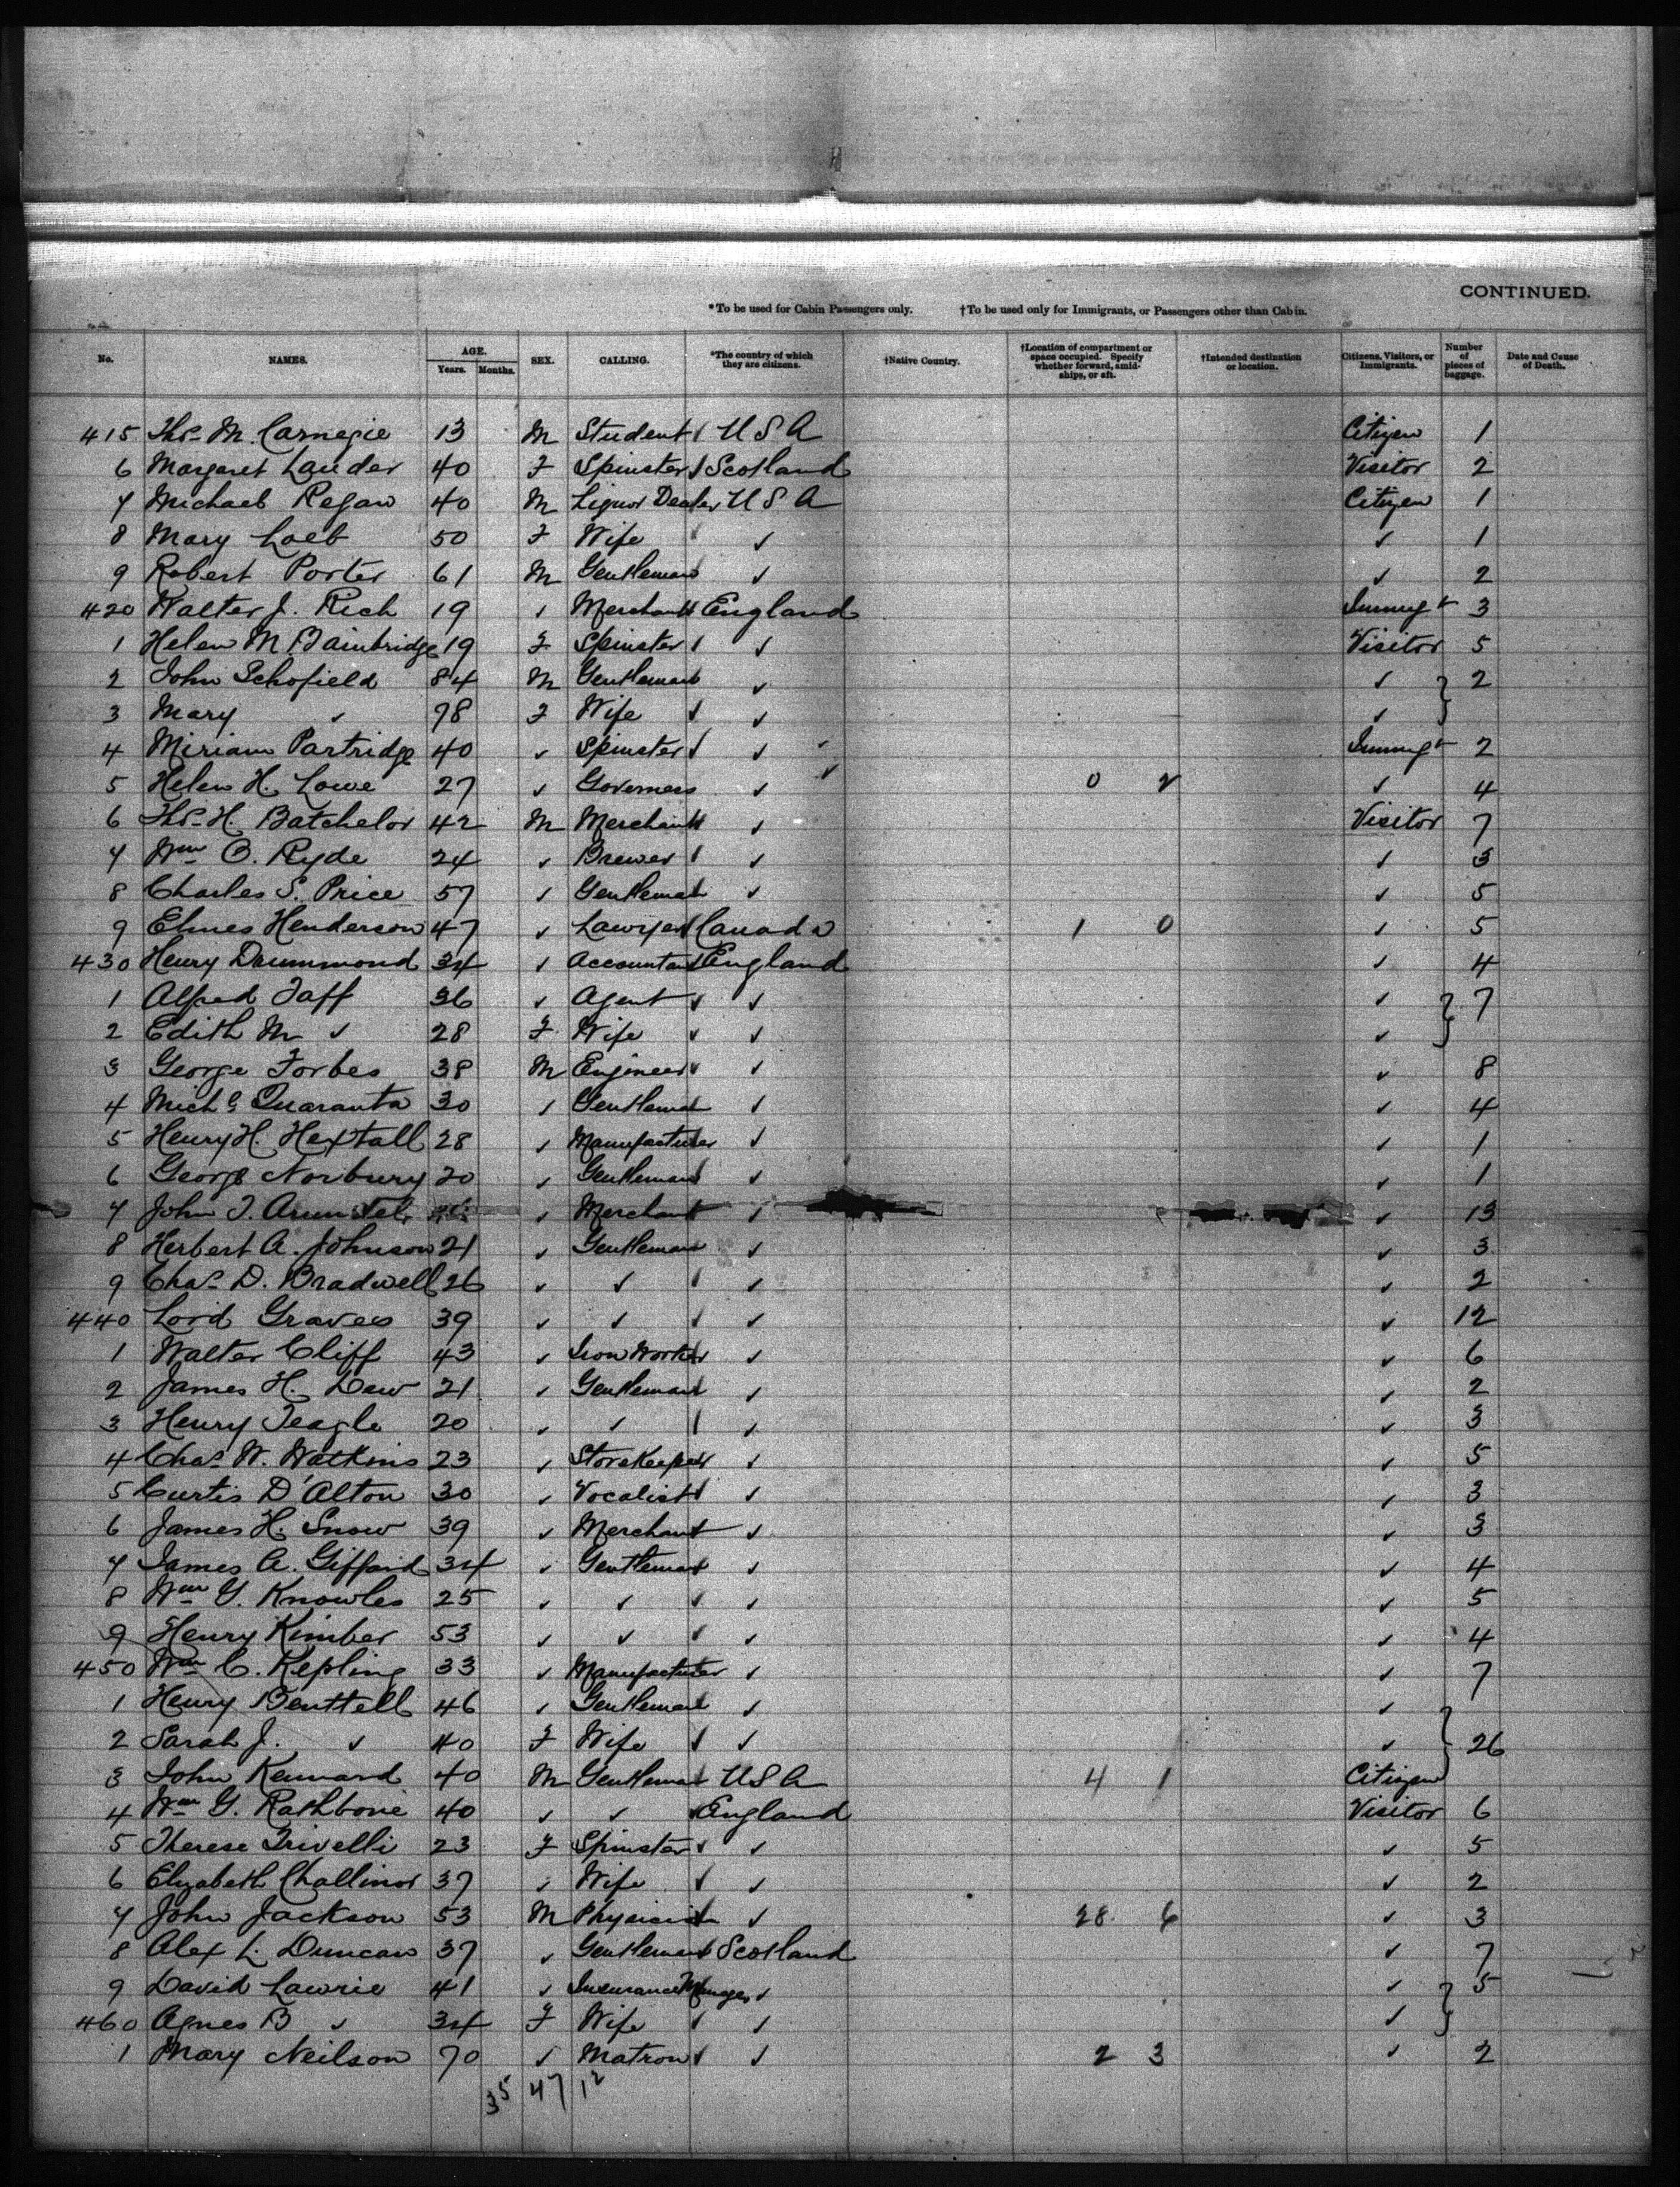 CONTINUED.
*To be used for Cabin Passengers only. †To be used only for Immigrants, or Passengers other than Cabin.
No. NAMES. AGE. Years. Months. SEX. CALLING. *The country of which they are citizens. †Native Country. †Location of compartment or space occupied. Specify whether forward, amidships, or aft. †Intended destination or location. Citizens, Visitors, or Immigrants. Number of pieces of baggage. Date and Cause of Death.
415 Thos M. Carnegie 13 M Student U S A Citizen 1
6 Margaret Lauder 40 F Spinster Scotland Visitor 2
7 Michael Regan 40 M Liquor Dealer U S A Citizen 1
8 Mary Loeb 50 F Wife ✓ ✓ 1
9 Robert Porter 61 M Gentleman ✓ ✓ 2
420 Walter J. Rich 19 ✓ Merchant England Immigt 3
1 Helen M. Bainbridge 19 F Spinster ✓ Visitor 5
2 John Schofield 84 M Gentleman ✓ ✓ } 2
3 Mary ✓ 78 F Wife ✓ ✓
4 Miriam Partridge 40 ✓ Spinster ✓ Immigt 2
5 Helen H. Lowe 27 ✓ Governess ✓ 0 2 ✓ 4
6 Thos H. Batchelor 42 M Merchant ✓ Visitor 7
7 Wm O. Ryde 24 ✓ Brewer ✓ ✓ 3
8 Charles S. Price 57 ✓ Gentleman ✓ ✓ 5
9 Elmes Henderson 47 ✓ Lawyer Canada 1 0 ✓ 5
430 Henry Drummond 34 ✓ Accountant England ✓ 4
1 Alfred Taff 36 ✓ Agent ✓ ✓ } 7
2 Edith M ✓ 28 F Wife ✓ ✓
3 George Forbes 38 M Engineer ✓ ✓ 8
4 Michl Quaranta 30 ✓ Gentleman ✓ ✓ 4
5 Henry H. Hextall 28 ✓ Manufacturer ✓ ✓ 1
6 George Norbury 20 ✓ Gentleman ✓ ✓ 1
7 John T. Arundel ✓ Merchant ✓ ✓ 13
8 Herbert A. Johnson 21 ✓ Gentleman ✓ ✓ 3
9 Chas D. Bradwell 26 ✓ ✓ ✓ ✓ 2
440 Lord Graves 39 ✓ ✓ ✓ ✓ 12
1 Walter Cliff 43 ✓ Iron Worker ✓ ✓ 6
2 James H. Dew 21 ✓ Gentleman ✓ ✓ 2
3 Henry Teagle 20 ✓ ✓ ✓ ✓ 3
4 Chas W. Watkins 23 ✓ Storekeeper ✓ ✓ 5
5 Curtis D'Alton 30 ✓ Vocalist ✓ ✓ 3
6 James H. Snow 39 ✓ Merchant ✓ ✓ 3
7 James A. Giffard 34 ✓ Gentleman ✓ ✓ 4
8 Wm G. Knowles 25 ✓ ✓ ✓ ✓ 5
9 Henry Kimber 53 ✓ ✓ ✓ ✓ 4
450 Wm C. Kepling 33 ✓ Manufacturer ✓ ✓ 7
1 Henry Benttell 46 ✓ Gentleman ✓ ✓
2 Sarah J. ✓ 40 F Wife ✓ ✓ } 26
3 John Kennard 40 M Gentleman U S A 4 1 Citizen
4 Wm G. Rathbone 40 ✓ ✓ England Visitor 6
5 Therese Trivelli 23 F Spinster ✓ ✓ 5
6 Elizabeth Challinor 37 ✓ Wife ✓ ✓ 2
7 John Jackson 53 M Physician ✓ 28. 6 ✓ 3
8 Alex L. Duncan 37 ✓ Gentleman Scotland ✓ 7
9 David Lawrie 41 ✓ Insurance Manager ✓ ✓ } 5
460 Agnes B ✓ 34 F Wife ✓ ✓
1 Mary Neilson 70 ✓ Matron ✓ 2 3 ✓ 2
35 47 12